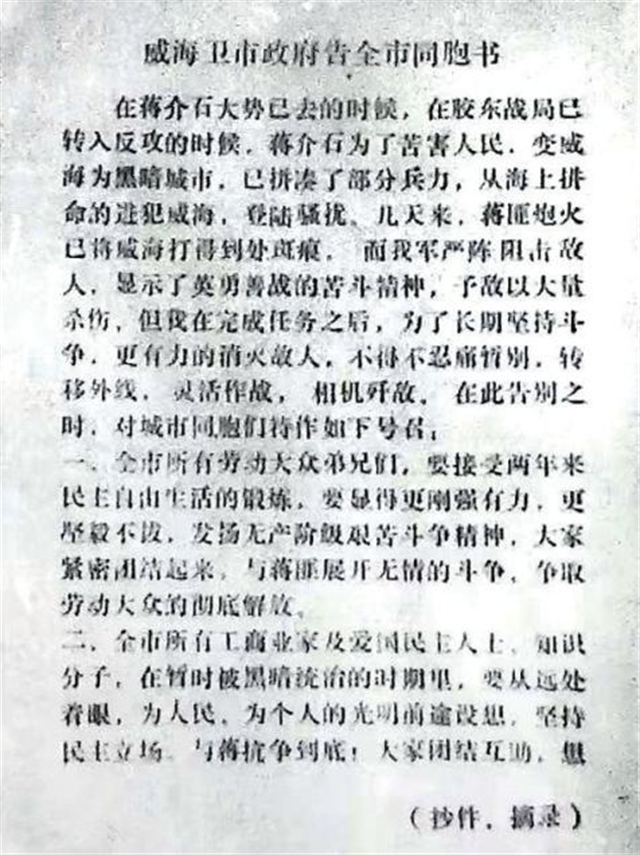 威海卫市政府告全市同胞书
在蒋介石大势已去的时候，在胶东战局已
转入反攻的时候，蒋介石为了苦害人民，变威
海为黑暗城市，已拼凑了部分兵力，从海上拼
命的进犯威海，登陆骚扰。几天来，蒋匪炮火
已将威海打得到处斑痕，而我军严陈阻击敌
人，显示了英勇善战的苦斗精神，予敌以大量
杀伤，但我在完成任务之后，为了长期坚持斗
争，更有力的消灭敌人，不得不忍痛暂别，转
移外线，灵活作战，相机歼敌。在此告别之
时，对城市同胞们特作如下号召：
一、全市所有劳动大众弟兄们，要接受两年来
民主自由生活的锻炼，要显得更刚强有力，更
坚毅不拔，发扬无产阶级艰苦斗争精神，大家
紧密团结起来，与蒋匪展开无情的斗争，争取
劳动大众的彻底解放。
二、全市所有工商业家及爱国民主人士、知识
分子，在暂时被黑暗统治的时期里，要从远处
着眼，为人民、为个人的光明前途设想，坚持
民主立场，与蒋抗争到底；大家团结互助，想
（抄件，摘录）